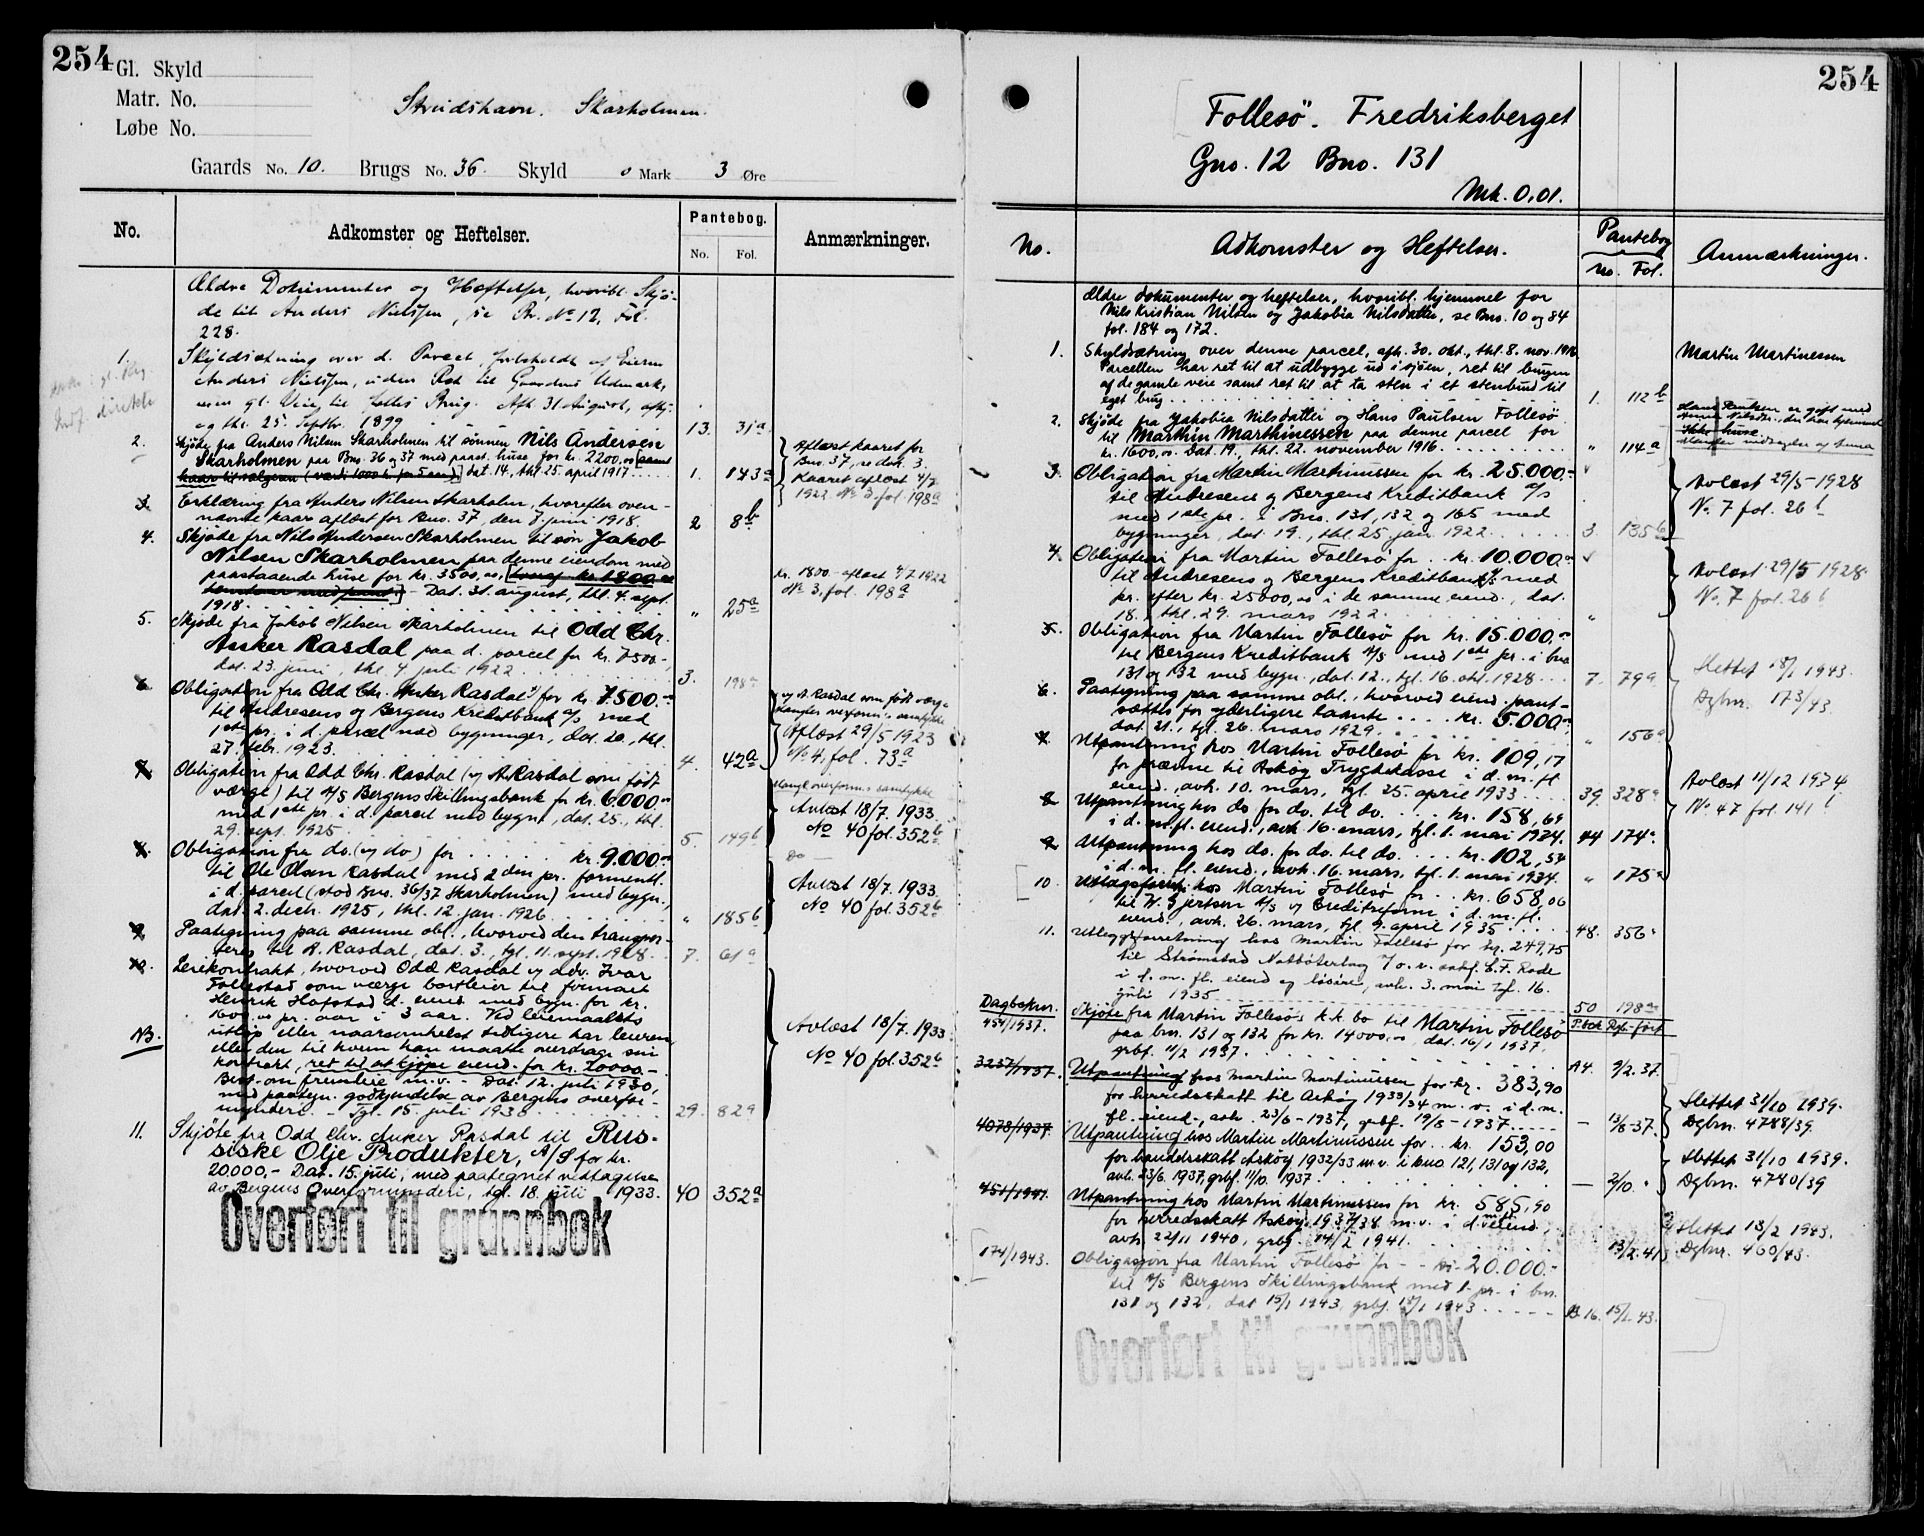 254
Gl. Skyld
Matr. No.
Løbe No.
Strudshavn. Skarholmen.
Gaards No. 10. Brugs No. 36. Skyld 0 Mark 3 Øre
No.
Adkomster og Heftelser.
Pantebog.
No. Fol.
Anmærkninger.
Ældre Dokumenter og Hæftelser, hvoribl. Skjø-
de til Anders Nielsen, se Pr. No 12, Fol.
228.
1. Skyldsætning over d. Parcel, forbeholdt af Eieren
Anders Nielsen, uden Ret til Gaardens Udmark,
men gl. Veie til fælles Brug. Afh. 31 August, afhj.
og thl. 25. Septbr. 1899 13. 31a
2. Skjøde fra Anders Nilsen Skarholmen til sønnen Nils Andersen
Skarholmen paa Bno. 36 og 37 med paast. huse for kr. 2200,00 [samt
kaar til sælgeren (værdi 1000 kr for 5 aar)] dat. 14, thl. 25 april 1917 1. 143a
Aflæst kaaret for
Bno. 37, se dok. 3.
Kaaret aflæst 4/7
1922 No 3. fol. 198a
3. Erklæring fra Anders Nilsen Skarholm, hvorefter oven-
nævnte kaar aflæst for Bno. 37, den 7. juni 1918. 2 8b
4. Skjøde fra Nils Andersen Skarholmen til søn Jakob
Nilsen Skarholmen paa denne eiendom med
paastaaende huse for kr. 3500,00, [hvoraf kr. 1800,00
henstaar med pant] - Dat. 31. august, thl. 4. sept.
1918 " 25a
kr. 1800.- aflæst 4/7 1922
No 3, fol. 198a
5. Skjøde fra Jakob Nilsen Skarholmen til Odd Chr.
Anker Rasdal paa d. parcel for kr. 7500.-,
dat. 23. juni, thl. 4 juli 1922 3. 198a
6. Obligation fra Odd Chr. Anker Rasdal for kr. 7.500.-
til Andresens og Bergens Kreditbank A/S med
1ste pr. i d. parcel med bygninger, dat. 20., thl.
27. febr. 1923 4. 42a
og A. Rasdal som født værge
Mangler overform.s samtykke
Aflæst 29/5 1923
No 4, fol. 73a
7. Obligation fra Odd Chr. Rasdal (og A. Rasdal som født
værge) til A/S Bergens Skillingsbank for kr. 6000.-
med 1ste pr. i d. parcel med bygn., dat. 25., thl.
29. sept. 1925 5. 149b
Mangl. overform.s samtykke
Avlæst 18/7. 1933.
No 40 fol. 352b
8. Obligation fra do. (og do) for kr. 9.000.-
til Ole Olsen Rasdal med 2den pr. formentl.
i d. parcel (stod Bno. 36/37 Skarholmen) med bygn.,
dat. 2. decb. 1925, thl. 12. jan. 1926 " 185b
Do —
Avlæst 18/7. 1933.
No 40 fol. 352b
9. Paategning paa samme obl., hvorved den transpor-
teres til A. Rasdal, dat. 3., tgl. 11. sept. 1928. 7. 61a
10. Leiekontrakt, hvorved Odd Rasdal og adv. Ivar
Follestad som værge bortleier til firmaet
Henrik Hafstad d. eiend. med bygn. for kr.
1600,00 pr. aar i 3 aar. Ved leiemaalets
utløp eller naarsomhelst tidligere har leieren
NB. eller den til hvem han maatte overdrage sin
kontrakt, ret til at kjøpe eiend. for kr. 20000.-
Best. om fremleie m.v. - Dat. 12. juli 1930,
med paategn. godkjendelse av Bergens overfor-
mynderi. - Tgl. 15. juli 1930 29. 82a
Avlæst 18/7. 1933
No 40 fol. 352b
11. Skjøte fra Odd Chr. Anker Rasdal til Rus-
siske Olje Produkter, A/S for kr.
20.000.- Dat. 15. juli, med paategnet vedtagelse
av Bergens Overformynderi, tgl. 18. juli 1933. 40 352a
Overført til grunnbok
254
Follesö. Fredriksberget
Gno. 12 Bno. 131
Mk. 0,01.
No.
Adkomster og Heftelser.
Pantebog
No. Fol.
Anmærkninger.
Ældre dokumenter og heftelser, hvoribl. hjemmel for
Nils Kristian Nilsen og Jakobia Nilsdatter, se Bno. 10 og 84
fol. 184 og 172.
1. Skyldsætning over denne parcel, afh. 30. okt., thl. 8. nov. 1916
Parcellen har ret til at udbygge ud i sjøen, ret til brugen
af de gamle veie samt ret til at ta sten i et stenbrud til
eget brug 1. 112b
Martin Martinessen
2. Skjøde fra Jakobia Nilsdatter og Hans Paulsen Follesø
til Marthin Marthinessen paa denne parcel for
kr. 1600,00. Dat. 19., thl. 22. november 1916. " 114a
Hans Paulsen er gift med
3. Obligation fra Martin Martinussen for kr. 25.000.-
til Andresens og Bergens Kreditbank A/S
med 1ste pr. i Bno. 131, 132 og 165 med
bygninger, dat. 19., thl. 25. jan. 1922. 3. 135b
Avlæst 29/5 - 1928
No. 7 fol. 26b
4. Obligation fra Martin Follesø for kr. 10.000.-
til Andresens og Bergens Kreditbank A/S med
pr. efter kr. 25000,00 i de samme eiend., dat.
18., thl. 29. mars 1922. "
Avlæst 29/5 1928.
No. 7 fol. 26b
5. Obligation fra Martin Follesø for kr. 15.000.-
til Bergens Kreditbank A/S med 1ste pr. i bno
131 og 132 med bygn., dat. 12., tgl. 16. okt. 1928 7. 79a
Slettet 18/1 1943.
Dgbnr. 173/43.
6. Paategning paa samme obl., hvorved eiend. pant-
sættes for yderligere laante kr. 5.000.-
dat. 21., tgl. 26. mars 1929. " 156a
7. Utpantning hos Martin Follesø for kr. 109,17
for præmie til Askøy Trygdekasse i d. m. fl.
eiend., avh. 10. mars, tgl. 25. april 1933 39. 328a
Avlæst 11/12 1934
No. 47 fol. 141b
8. Utpantning hos do. for do. til do. kr. 158,69
i d. m. fl. eiend., avh. 16. mars, tgl. 1. mai 1934. 44 174a
9. Utpantning hos do. for do. til do. kr. 102,54
i d. m. fl. eiend., avh. 16. mars, tgl. 1. mai 1934. " 175a
10. Utlægsforretn. hos Martin Follesø for kr. 658,06
til W. Gjertsen A/S v/ Creditreform i d. m. fl.
eiend., avh. 26. mars, tgl. 9. april 1935 48. 356a
11. Utleggsforretning hos Martin Follesø for kr. 249,75
til Strømstad
i d. m. fl. eiend og løsøre, avh. 3. mai tgl. 16.
juli 1935 50 198a
Dagboknr. P.bok Dgb. ført
454/1937. Skjøte fra Martin Follesø's k.k. bo til Martin Follesø
paa bnr. 131 og 132 for kr. 14000,00, dat. 16/1 1937,
grbf. 11/2 1937. A4. 9/2.37.
3237/1937. Utpantning hos Martin Martinussen for kr. 383,90
for herredsskatt til Askøy 1933/34 m. v. i d. m.
fl. eiend., avh. 23/6 - 1937, grbf. 19/8 - 1937 — 13/8-37.
Slettet 31/10 1939.
Dgbnr. 4788/39
4078/1937. Utpantning hos Martin Martinussen for kr. 153,00
for herredsskatt Askøy 1932/33 m.v. i bno 121, 131 og 132,
avh. 23/6. 1937, grbf. 11/10. 1937 — 2/10. "
Slettet 31/10 1939.
Dgbnr. 4780/39
451/1941. Utpantning hos Martin Martinussen for kr. 585,90
for herredsskatt Askøy 1937/38 m.v. i d. m. fl. eiend.,
avh. 22/11 1940, grbf. 14/2 1941. 13/2.41
Slettet 13/2 1943.
Dgbnr. 460/43.
174/1943. Obligasjon fra Martin Follesø for kr. 20.000.-
til A/S Bergens Skillingsbank med 1. pr. i bnr.
131 og 132, dat 15/1 1943, grbf. 18/1 1943 B.16. 15/1.43.
Overført til grunnbok